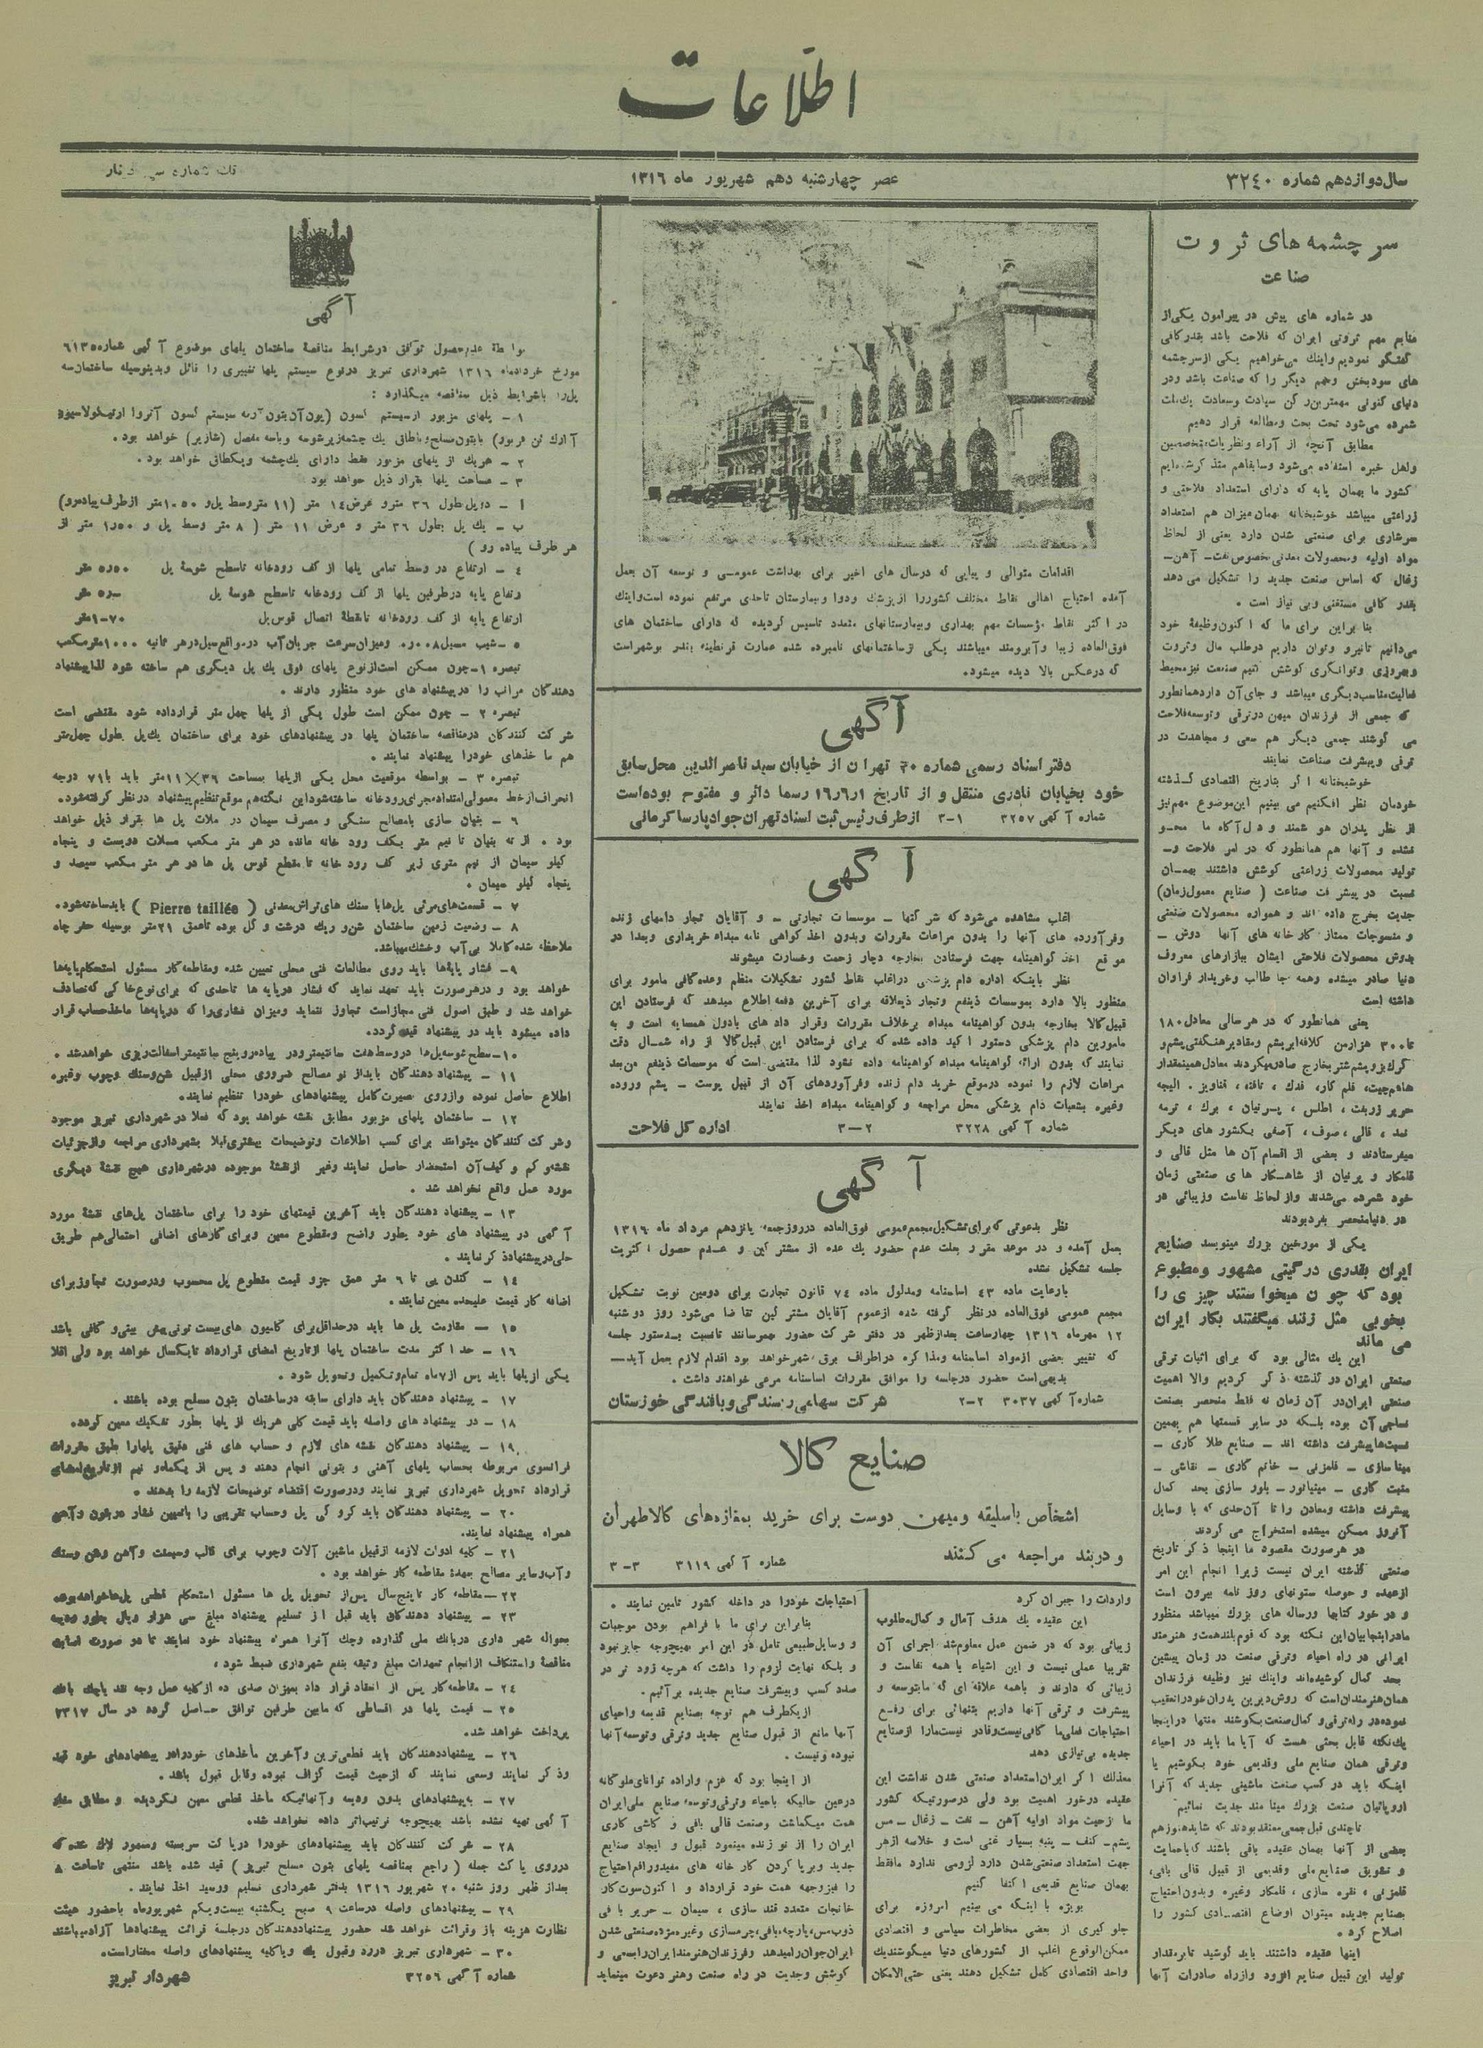 اطلاعات
سال دوازدهم شماره ۳۲۴۰
عصر چهارشنبه دهم شهریور ماه ۱۳۱۶
تك شماره
سر چشمه های ثروت
صناعت
در شماره های پیش در پیرامون یکی از
منابع مهم ثروتی ایران که فلاحت باشد بقدر کافی
گفتگو نمودیم و اینك می‌خواهیم یکی از سرچشمه
های سودبخش و مهم دیگر را که صناعت باشد و در
دنیای کنونی مهمترین رکن سیادت و سعادت یك ملت
شمرده می‌شود تحت بحث و مطالعه قرار دهیم
مطابق آنچه از آراء و نظریات متخصصین
واهل خبره استفاده می‌شود و سابقاهم متذکر شده‌ایم
کشور ما بهمان پایه که دارای استعداد فلاحتی و
زراعتی میباشد خوشبختانه بهمان میزان هم استعداد
سرشاری برای صنعتی شدن دارد یعنی از لحاظ
مواد اولیه ومحصولات معدنی بخصوص نفت ـ آهن ـ
زغال که اساس صنعت جدید را تشکیل می دهد
بقدر کافی مستغنی وبی نیاز است .
بنا براین برای ما که اکنون وظیفه خود
میدانیم تا نیرو وتوان داریم درطلب مال وثروت
وبهروزی وتوانگری کوشش کنیم صنعت نیز محیط
فعالیت مناسب دیگری میباشد و جای آن دارد همانطور
که جمعی از فرزندان میهن در ترقی و توسعه فلاحت
می کوشند جمعی دیگر هم سعی و مجاهدت در
ترقی وپیشرفت صناعت نمایند
خوشبختانه اگر بتاریخ اقتصادی گذشته
خودمان نظر افکنیم می بینیم این موضوع مهم نیز
از نظر پدران هوشمند و دل آگاه ما محو
نشده و آنها هم همانطور که در امر فلاحت و ـ
تولید محصولات زراعتی کوشش داشتند بهمان
نسبت در پیشرفت صناعت ( صنایع معمول زمان )
جدیت بخرج داده اند و همواره محصولات صنعتی
و منسوجات ممتاز کارخانه های آنها دوش ـ
بدوش محصولات فلاحتی ایشان ببازارهای معروف
دنیا صادر میشده وهمه جا طالب وخریدار فراوان
داشته است
یعنی همانطور که در هر سالی معادل ۱۸۰
تا ۳۰۰ هزار من کلافه ابریشم و مقادیر هنگفتی پشم و
کرك بز و پشم شتر بخارج صادر میکردند معادل همینمقدار
حریر زربفت ، اطلس ، پرنیان ، برك ، ترمه
نمد ، قالی ، صوف ، بکشور های دیگر
میفرستادند و بعضی از اقسام آن ها مثل قالی و
قلمکار و پرنیان از شاهکار های صنعتی زمان
خود شمرده می‌شدند و از لحاظ نفاست وزیبائی در
در دنیا منحصر بفرد بودند
یکی از مورخین بزرك مینویسد صنایع
ایران بقدری در گیتی مشهور و مطبوع
بود که چون میخواستند چیزی را
بخوبی مثل زنند میگفتند بکار ایران
می ماند
این یك مثالی بود که برای اثبات ترقی
صنعتی ایران در گذشته ذکر کردیم والا اهمیت
صنعتی ایران در آن زمان نه فقط منحصر بصنعت
نساجی آن بوده بلکه در سایر قسمتها هم بهمین
نسبت‌ها پیشرفت داشته اند ـ صنایع طلا کاری ـ
مینا سازی ـ قلمزنی ـ خاتم کاری ـ نقاشی ـ
منبت کاری ـ مینیاتور ـ بلور سازی بحد کمال
پیشرفت داشته ومعادن را تا آن‌حدی که با وسایل
آنروز ممکن میشده استخراج می کردند
در هر صورت مقصود ما اینجا ذکر تاریخ
صنعتی گذشته ایران نیست زیرا انجام این امر
ازعهده و حوصله ستونهای روز نامه بیرون است
و در خور کتابها ورساله های بزرك میباشد منظور
ما در اینجا بیان این نکته بود که قوم بلند همت و هنرمند
ایرانی در راه احیاء وترقی صنعت در زمان پیشین
بحد کمال کوشیده‌اند واینك نیز وظیفه فرزندان
همان هنرمندان است که روش دیرین پدران خود را تعقیب
نموده در راه ترقی و کمال صنعت بکوشند منتها در اینجا
یك نکته قابل بحثی هست که آیا ما باید در احیاء
وترقی همان صنایع ملی وقدیمی خود بکوشیم یا
اینکه باید در کسب صنعت ماشینی جدید که آنرا
اروپائیان صنعت بزرك مینامند جدیت نمائیم
تا چندی قبل جمعی معتقد بودند که شاید هنوز هم
بعضی از آنها بهمان عقیده باقی باشند که با حمایت
و تشویق صنایع ملی وقدیمی از قبیل قالی بافی ،
قلمزنی ، نقره سازی ، قلمکار وغیره وبدون احتیاج
بصنایع جدیده میتوان اوضاع اقتصادی کشور را
اصلاح کرد .
اینها عقیده داشتند باید کوشید تا بر مقدار
تولید این قبیل صنایع افزود و از راه صادرات آنها
اقدامات متوالی و پیاپی که درسال های اخیر برای بهداشت عمومی و توسعه آن بعمل
آمده احتیاج اهالی نقاط مختلف کشور را از پزشك ودوا وبیمارستان تاحدی مرتفع نموده است و اینك
در اکثر نقاط مؤسسات مهم بهداری وبیمارستانهای متعدد تاسیس گردیده که دارای ساختمان های
فوق‌العاده زیبا و آبرومند میباشند یکی از ساختمانهای نامبرده شده عمارت قرنطینه بندر بوشهر است
که درعکس بالا دیده میشود.
آگهی
دفتر اسناد رسمی شماره ۳۰ تهران از خیابان سید ناصرالدین محل سابق
خود بخیابان نادری منتقل و از تاریخ ۱۶/۶/۱ رسما دائر و مفتوح بوده است
شماره آگهی ۳۲۵۷ ۱ـ۳ از طرف رئیس ثبت اسناد تهران جواد پارسا کرمانی
آگهی
اغلب مشاهده می‌شود که شرکتها ـ موسسات تجارتی ـ و آقایان تجار دامهای زنده
وفرآورده های آنها را بدون مراعات مقررات وبدون اخذ کواهی نامه مبداء خریداری وبعدا در
موقع اخذ گواهینامه جهت فرستادن بخارجه دچار زحمت وخسارت میشوند
نظر باینکه اداره دام پزشکی در اغلب نقاط کشور تشکیلات منظم وعده کافی مامور برای
منظور بالا دارد بموسسات ذینفع وتجار ذیعلاقه برای آخرین دفعه اطلاع میدهد که فرستادن این
قبیل کالا بخارجه بدون کواهینامه مبداء برخلاف مقررات وقرار داد های بادول همسایه است و به
مامورین دام پزشکی دستور اکید داده شده که برای فرستادن این قبیل کالا از راه شمال دقت
نمایند که بدون ارائه گواهینامه مبداء کواهینامه داده نشود لذا مقتضی است که موسسات ذینفع من‌بعد
مراعات لازم را نموده درموقع خرید دام زنده وفرآوردهای آن از قبیل پوست ـ پشم وروده
وغیره بشعبات دام پزشکی محل مراجعه و کواهینامه مبداء اخذ نمایند
شماره آگهی ۳۲۲۸ ۲ـ۳ اداره کل فلاحت
آگهی
نظر بدعوتی که برای تشکیل مجمع عمومی فوق‌العاده در روز جمعه پانزدهم مرداد ماه ۱۳۱۶
بعمل آمده و در موعد مقرر بعلت عدم حضور یك عده از مشترکین و عدم حصول اکثریت
جلسه تشکیل نشد.
بارعایت ماده ۴۳ اساسنامه ومدلول ماده ۷۴ قانون تجارت برای دومین نوبت تشکیل
مجمع عمومی فوق‌العاده درنظر گرفته شده ازعموم آقایان مشترکین تقاضا می‌شود روز دوشنبه
۱۲ مهرماه ۱۳۱۶ چهارساعت بعدازظهر در دفتر شرکت حضور بهمرسانند تانسبت بدستور جلسه
که تغییر بعضی ازمواد اساسنامه ومذاکره دراطراف برق شهر خواهد بود اقدام لازم بعمل آید ـ
بدیهی است حضور درجلسه را موافق مقررات اساسنامه مرعی خواهند داشت .
شماره آگهی ۳۰۳۷ ۲ـ۲ شرکت سهامی ریسندگی و بافندگی خوزستان
صنایع کالا
اشخاص باسلیقه ومیهن دوست برای خرید بمغازه‌های کالا طهران
و دربند مراجعه می کنند شماره آگهی ۳۱۱۹ ۳ـ۳
واردات را جبران کرد
این عقیده یك هدف آمال و کمال مطلوب
زیبائی بود که در ضمن عمل معلوم شد اجرای آن
تقریبا عملی نیست و این اشیاء با همه نفاست و
زیبائی که دارند و باهمه علاقه ای که ما بتوسعه و
پیشرفت و ترقی آنها داریم بتنهائی برای رفع
احتیاجات فعلی ما کافی نیست و قادر نیست ما را از صنایع
جدیده بی‌نیازی دهد
معذلك اگر ایران استعداد صنعتی شدن نداشت این
عقیده درخور اهمیت بود ولی درصورتیکه کشور
ما ازحیث مواد اولیه آهن ـ نفت ـ زغال ـ مس
پشم ـ کنف ـ پنبه بسیار غنی است و خلاصه از هر
جهت استعداد صنعتی شدن دارد لزومی ندارد ما فقط
بهمان صنایع قدیمی اکتفا کنیم
بویژه با اینکه می بینیم امروزه برای
جلو گیری از بعضی مخاطرات سیاسی و اقتصادی
ممکن‌الوقوع اغلب از کشورهای دنیا میکوشند یك
واحد اقتصادی کامل تشکیل دهند یعنی حتی‌الامکان
احتیاجات خودرا در داخله کشور تامین نمایند .
بنابراین برای ما با فراهم بودن موجبات
و وسایل طبیعی تامل در این امر بهیچوجه جایز نبود
و بلکه نهایت لزوم را داشت که هرچه زود تر در
صدد کسب وپیشرفت صنایع جدیده برآئیم .
از یکطرف هم توجه بصنایع قدیمه واحیای
آنها مانع از قبول صنایع جدید وترقی وتوسعه آنها
نبوده ونیست .
از اینجا بود که عزم واراده توانای ملوکانه
درعین حالیکه باحیاء وترقی وتوسعه صنایع ملی ایران
همت میگماشت وصنعت قالی بافی و کاشی کاری
ایران را از نو زنده مینمود قبول و ایجاد صنایع
جدید وبرپا کردن کارخانه های مفید ورافع احتیاج
را نیز وجهه همت خود قرارداد و اکنون سوت کار
خانجات متعدد قند سازی ، سیمان ـ حریر بافی
ذوب مس، پارچه بافی، چرمسازی وغیره مژده صنعتی شدن
ایران جوان را میدهد و فرزندان هنرمند ایران را بسعی و
کوشش وجدیت در راه صنعت وهنر دعوت مینماید
آگهی
بواسطه عدم حصول توافق در شرایط مناقصهٔ ساختمان پلهای موضوع آگهی شماره ۶۱۳۵
مورخ خردادماه ۱۳۱۶ شهرداری تبریز درنوع سیستم پلها تغییری را قائل وبدینوسیله ساختمان سه
پل را باشرایط ذیل مناقصه میگذارد :
خواهد بود .
۲ ـ هریك از پلهای مزبور فقط دارای یك چشمه ویکطاقی خواهد بود .
۳ ـ مساحت پلها بقرار ذیل خواهد بود
أ ـ دوپل طول ۳۶ متر و عرض ۱۴ متر (۱۱ متر وسط پل و ۱٫۵۰ متر ازطرف پیاده‌رو)
ب ـ یك پل بطول ۳۶ متر و عرض ۱۱ متر ( ۸ متر وسط پل و ۱٫۵۰ متر از
هر طرف پیاده رو )
۴ ـ ارتفاع در وسط تمامی پلها از کف رودخانه تاسطح شوسهٔ پل ۵٫۵۰ متر
ارتفاع پایه درطرفین پلها از کف رودخانه تاسطح شوسهٔ پل
ارتفاع پایه از کف رودخانه تانقطهٔ اتصال قوس پل ۱ـ۷۰ متر
تبصره ۱ ـ چون ممکن است ازنوع پلهای فوق یك پل دیگری هم ساخته شود لذا پیشنهاد
دهندگان مراتب را درپیشنهاد های خود منظور دارند .
تبصره ۲ ـ چون ممکن است طول یکی از پلها چهل متر قرارداده شود مقتضی است
شرکت کنندگان درمناقصه ساختمان پلها در پیشنهادهای خود برای ساختمان یك پل بطول چهل متر
هم مأخذهای خودرا پیشنهاد نمایند .
تبصره ۳ ـ بواسطه موقعیت محل یکی ازپلها بمساحت ۳۶×۱۱ متر باید با ۷۱ درجه
انحراف ازخط معمولی امتداد مجرای رودخانه ساخته شود این نکته هم موقع تنظیم پیشنهاد در نظر گرفته شود.
۶ ـ بنیان سازی بامصالح سنگی و مصرف سیمان در ملات پل ها بقرار ذیل خواهد
بود . از ته بنیان تا نیم متر بکف رود خانه مانده در هر متر مکعب مسلات دویست و پنجاه
کیلو سیمان از نیم متری زیر کف رود خانه تا مقطع قوس پل ها در هر متر مکعب سیصد و
پنجاه کیلو سیمان .
۷ ـ قسمت‌های مرئی پل‌ها با سنك های تراش معدنی ( Pierre taillée ) باید ساخته شود.
۸ ـ وضعیت زمین ساختمان شن و ریك درشت و گل بوده تا عمق ۲۱ متر بوسیله حفر چاه
ملاحظه شده کاملا بی‌آب وخشك میباشد.
۹ ـ فشار پایه‌ها باید روی مطالعات فنی محلی تعیین شده ومقاطعه کار مسئول استحکام پایه‌ها
خواهد بود و درهرصورت باید تعهد نماید که فشار در پایه ها تاحدی که برای نوع خاکی که تصادف
خواهد شد و طبق اصول فنی مجاز است تجاوز ننماید ومیزان فشاری را که درپایه‌ها ماخذ حساب قرار
داده میشود باید در پیشنهاد قید گردد.
۱۰ ـ سطح شوسه پل‌ها در وسط هفت سانتیمتر و در پیاده‌رو پنج سانتیمتر اسفالت‌ریزی خواهد شد .
۱۱ ـ پیشنهاد دهندگان باید از نوع مصالح ضروری محلی ازقبیل شن وسنك وچوب وغیره
اطلاع حاصل نموده وازروی بصیرت کامل پیشنهادهای خودرا تنظیم نمایند.
۱۲ ـ ساختمان پلهای مزبور مطابق نقشه خواهد بود که فعلا در شهرداری تبریز موجود
وشرکت کنندگان میتوانند برای کسب اطلاعات وتوضیحات بیشتری قبلا بشهرداری مراجعه وازجزئیات
نقشه و کم و کیف آن استحضار حاصل نمایند وغیر ازنقشهٔ موجوده درشهرداری هیچ نقشهٔ دیگری
مورد عمل واقع نخواهد شد .
۱۳ ـ پیشنهاد دهندگان باید آخرین قیمتهای خود را برای ساختمان پل‌های نقشهٔ مورد
آگهی در پیشنهاد های خود بطور واضح ومقطوع معین وبرای کارهای اضافی احتمالی هم طریق
حلی در پیشنهاد ذکر نمایند .
۱۴ ـ کندن پی تا ۶ متر عمق جزو قیمت مقطوع پل محسوب ودرصورت تجاوز برای
اضافه کار قیمت علیحده معین نمایند .
۱۵ ـ مقاومت پل ها باید درحداقل برای کامیون های بیست تونی پیش بینی و کافی باشد
۱۶ ـ حداکثر مدت ساختمان پلها ازتاریخ امضای قرارداد تایکسال خواهد بود ولی اقلا
یکی ازپلها باید پس از ۷ ماه تمام و تکمیل و تحویل شود .
۱۷ ـ پیشنهاد دهندگان باید دارای سابقه درساختمان بتون مسلح بوده باشند .
۱۸ ـ در پیشنهاد های واصله باید قیمت کلی هریك از پلها بطور تفکیك معین گردد.
۱۹ ـ پیشنهاد دهندگان نقشه های لازم و حساب های فنی دقیق پلها را طبق مقررات
فرانسوی مربوطه بحساب پلهای آهنی و بتونی انجام دهند و پس از یکماه و نیم از تاریخ امضای
قرارداد تحویل شهرداری تبریز نمایند ودرصورت اقتضاء توضیحات لازمه را بدهند .
۲۰ ـ پیشنهاد دهندگان باید کروکی پل وحساب تقریبی را باتعیین فشار در بتون و آهن
همراه پیشنهاد نمایند.
۲۱ ـ کلیه ادوات لازمه ازقبیل ماشین آلات وچوب برای قالب وسیمنت وآهن وشن وسنك
وآب وسایر مصالح بعهدهٔ مقاطعه کار خواهد بود .
۲۲ ـ مقاطعه کار تا پنج سال پس از تحویل پل ها مسئول استحکام قطعی پل‌ها خواهد بود.
۲۳ ـ پیشنهاد دهندگان باید قبل از تسلیم پیشنهاد مبلغ سی هزار ریال بطور ودیعه
بحواله شهرداری دربانك ملی گذارده وچك آنرا همراه پیشنهاد خود نمایند تا در صورت اصابت
مناقصه واستنکاف ازانجام تعهدات مبلغ وثیقه بنفع شهرداری ضبط شود .
۲۵ ـ قیمت پلها در اقساطی که مابین طرفین توافق حاصل گردد در سال ۱۳۱۷
پرداخت خواهد شد.
۲۶ ـ پیشنهاددهندگان باید قطعی‌ترین وآخرین مأخذهای خودرا در پیشنهادهای خود قید
وذکر نمایند وسعی نمایند که ازحیث قیمت گزاف نبوده وقابل قبول باشد .
۲۷ ـ بپیشنهادهای بدون ودیعه وآنهائیکه مأخذ قطعی معین نکردیده و مطابق مفاد
آگهی تهیه نشده باشد بهیچوجه ترتیب‌اثر داده نخواهد شد.
۲۸ ـ شرکت کنندگان باید پیشنهادهای خودرا درپاکت سربسته وممهور لاك شده که
درروی پاکت جمله ( راجع بمناقصه پلهای بتون مسلح تبریز ) قید شده باشد منتهی تاساعت ۸
بعداز ظهر روز شنبه ۲۰ شهریور ۱۳۱۶ بدفتر شهرداری تسلیم ورسید اخذ نمایند .
۲۹ ـ پیشنهادهای واصله درساعت ۹ صبح یکشنبه بیست ویکم شهریورماه باحضور هیئت
نظارت هزینه باز وقرائت خواهد شد حضور پیشنهاددهندگان درجلسه قرائت پیشنهادها آزاد میباشد
۳۰ ـ شهرداری تبریز در رد وقبول یك ویا کلیه پیشنهادهای واصله مختار است.
شماره آگهی ۳۲۵۶ شهردار تبریز